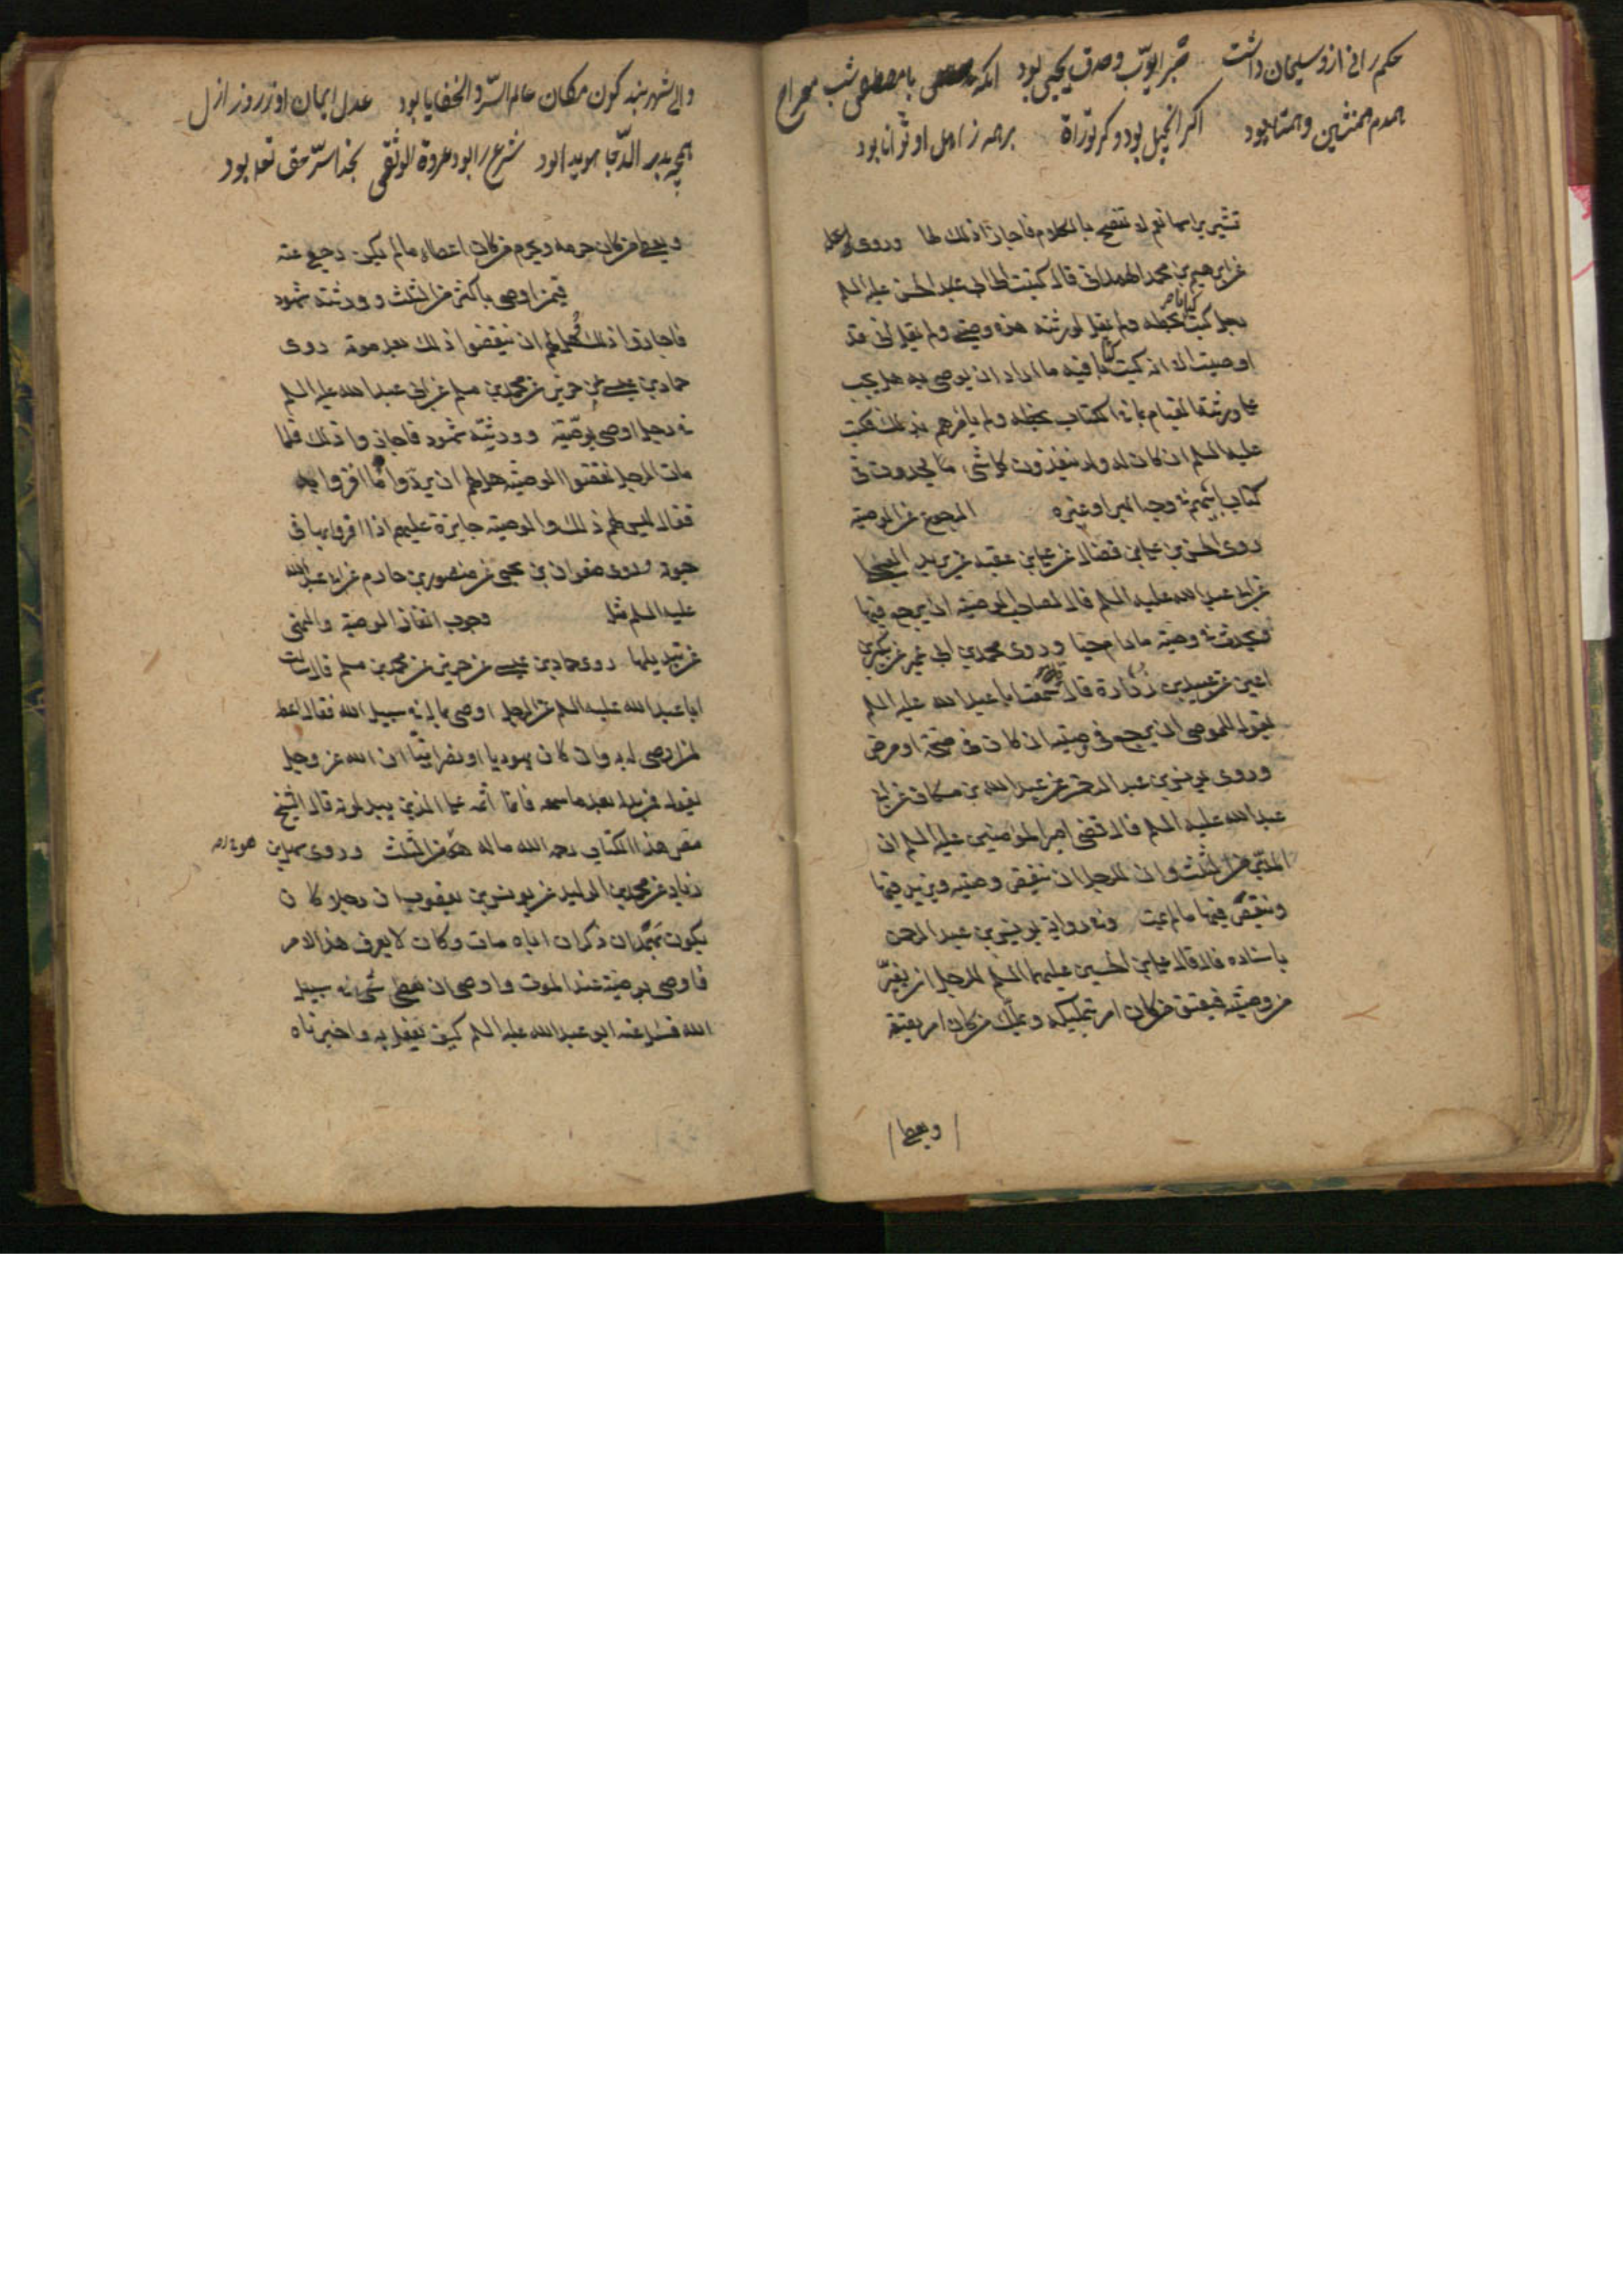 حکم رانی ازو سلیمان داشت صبر ایوب و صدق یحیی بود آنکه با مصطفی شب معراج
همدم همنشین و همتا بود اکر انجیل بود و کر توراة بر همه ز اهل او توانا بود
تشیر براسها نعم لم تفصح بالکلام فاجاز ذلک لها وروی
عن ابرهیم بن محمد الهمدانی قال کتبت الی ابی الحسن علیه السلم
رجل کتب کتابا بخطه ولم یقل لورثته هذه وصیتی ولم یقل انی قد
اوصیت الا انه کتب کتابا فیه ما اراد ان یوصی به هل یجب
علی ورثته القیام بما فی الکتاب بخطه ولم یامرهم بذلک فکتب
علیه السلم ان کان له ولد ینفذون کل شی یجدون فی
کتاب ابیهم فی وجه البر او غیره الرجوع عن الوصیة
روی الحسن بن علی بن فضال عن علی بن عقبه عن برید العجلی
عن ابی عبد الله علیه السلم قال لصاحب الوصیة ان یرجع فیها
ویحدث فی وصیته مادام حیا وروی محمد بن ابی عمیر عن بکیر بن
اعین عن عبید بن زرارة قال سمعت ابا عبد الله علیه السلم
یقول للموصی ان یرجع فی وصیته ان کان فی صحة او مرض
وروی یونس بن عبد الرحمن عن عبد الله بن مسکان عن ابی
عبد الله علیه السلم قال قضی امیر المؤمنین علیه السلم ان
المدبر من الثلث وان للرجل ان ینقض وصیته ویزید فیها
وینقص فیها مالم یمت وفی روایة یونس بن عبد الرحمن
باسناده قال قال علی بن الحسین علیهما السلم للرجل ان یغیر
من وصیته فیعتق من کان امر بتملیکه ویملک من کان امر بعتقه
ویعطی
والی شهر بند کون مکان عالم السر و الخفایا بود عدل ایمان او ز روز ازل
همچو بدر الدجا هویدا بود شرع را بود عروة الوثقی بخدا سر حق تعالی بود
ویعطی من کان حرمه ویحرم من کان اعطاه مالم یکن رجع عنه
فیمن اوصی باکثر من الثلث وورثته شهود
فاجازوا ذلک هل لهم ان ینقضوا ذلک بعد موته روی
حماد بن عیسی عن حریز عن محمد بن مسلم عن ابی عبد الله علیه السلم
فی رجل اوصی بوصیة وورثته شهود فاجازوا ذلک فلما
مات الرجل نقضوا الوصیة هل لهم ان یردوا ما اقروا به
فقال لیس لهم ذلک والوصیة جایزة علیهم اذا اقروا بها فی
حیوته وروی صفوان بن یحیی عن منصور بن حازم عن ابی عبد الله
علیه السلم مثله وجوب انفاذ الوصیة والنهی
عن تبدیلها روی حماد بن عیسی عن حریز عن محمد بن مسلم قال سالت
ابا عبد الله علیه السلم عن الرجل اوصی بماله فی سبیل الله فقال اعط
لمن اوصی له به وان کان یهودیا او نصرانیا ان الله عز وجل
یقول فمن بدله بعد ما سمعه فانما اثمه علی الذین یبدلونه قال الشیخ
مصنف هذا الکتاب رحمه الله ماله هو الثلث وروی سهل بن
زیاد عن محمد بن الولید عن یونس بن یعقوب ان رجلا کان
یکون بهمدان ذکر ان اباه مات وکان لا یعرف هذا الامر
فاوصی بوصیة عند الموت واوصی ان یعطی شی فی سبیل
الله فسئل عنه ابو عبد الله علیه السلم کیف یفعل به واخبرناه